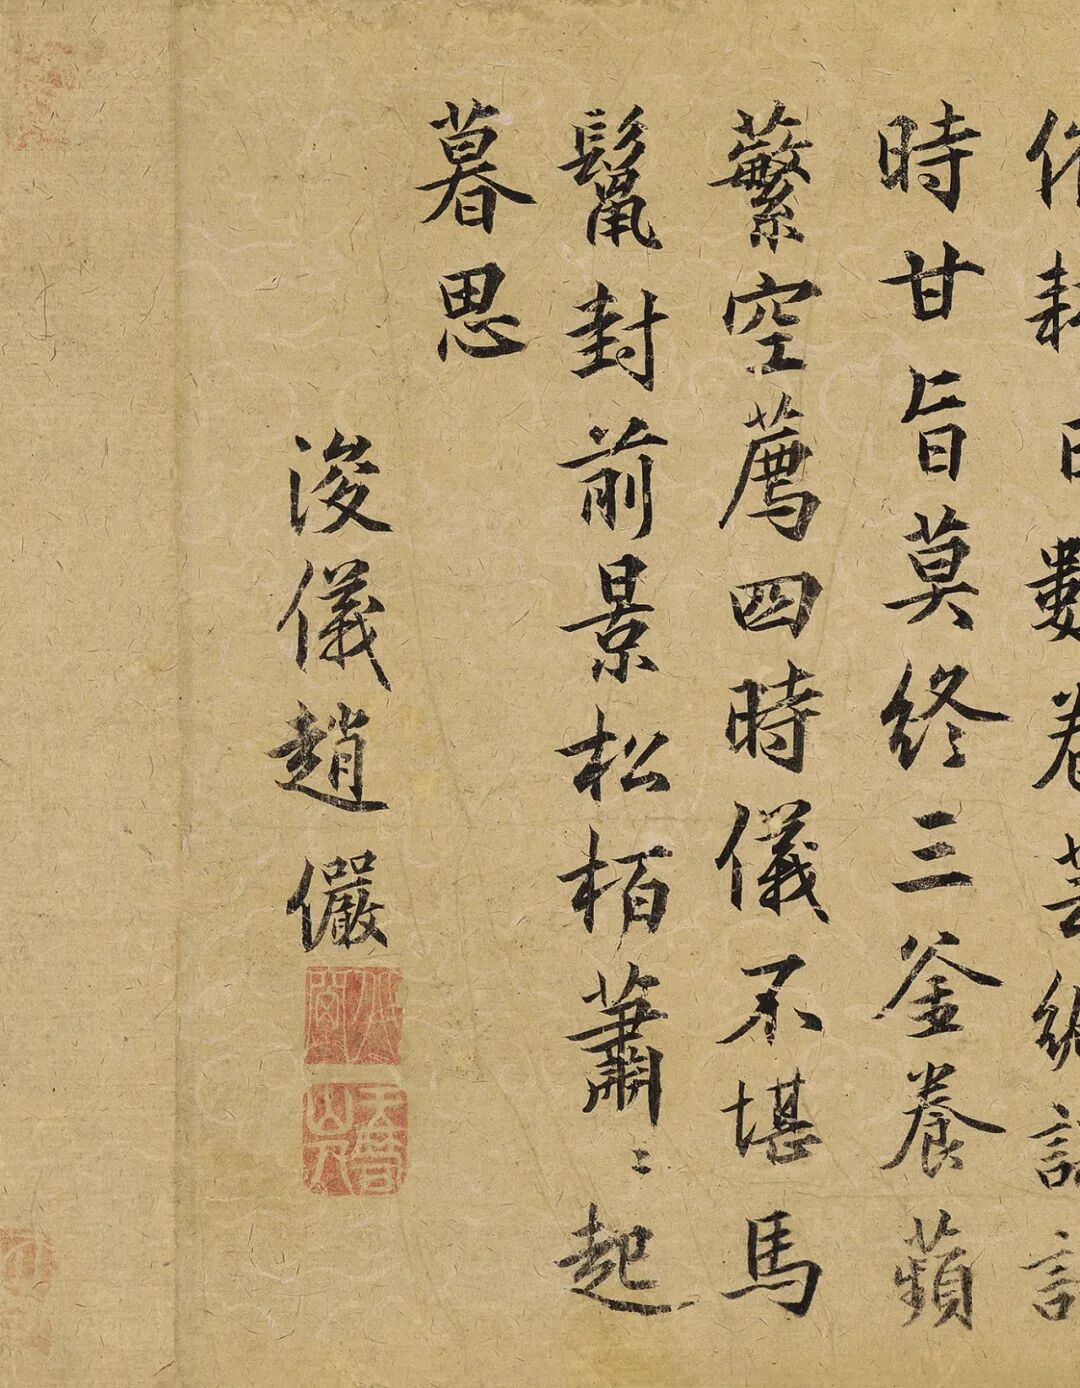 耕數卷芸編
時甘旨莫終三釜養蘋
蘩空薦四時儀不堪馬
鬣封前景松栢蕭〻起
暮思
浚儀趙儼